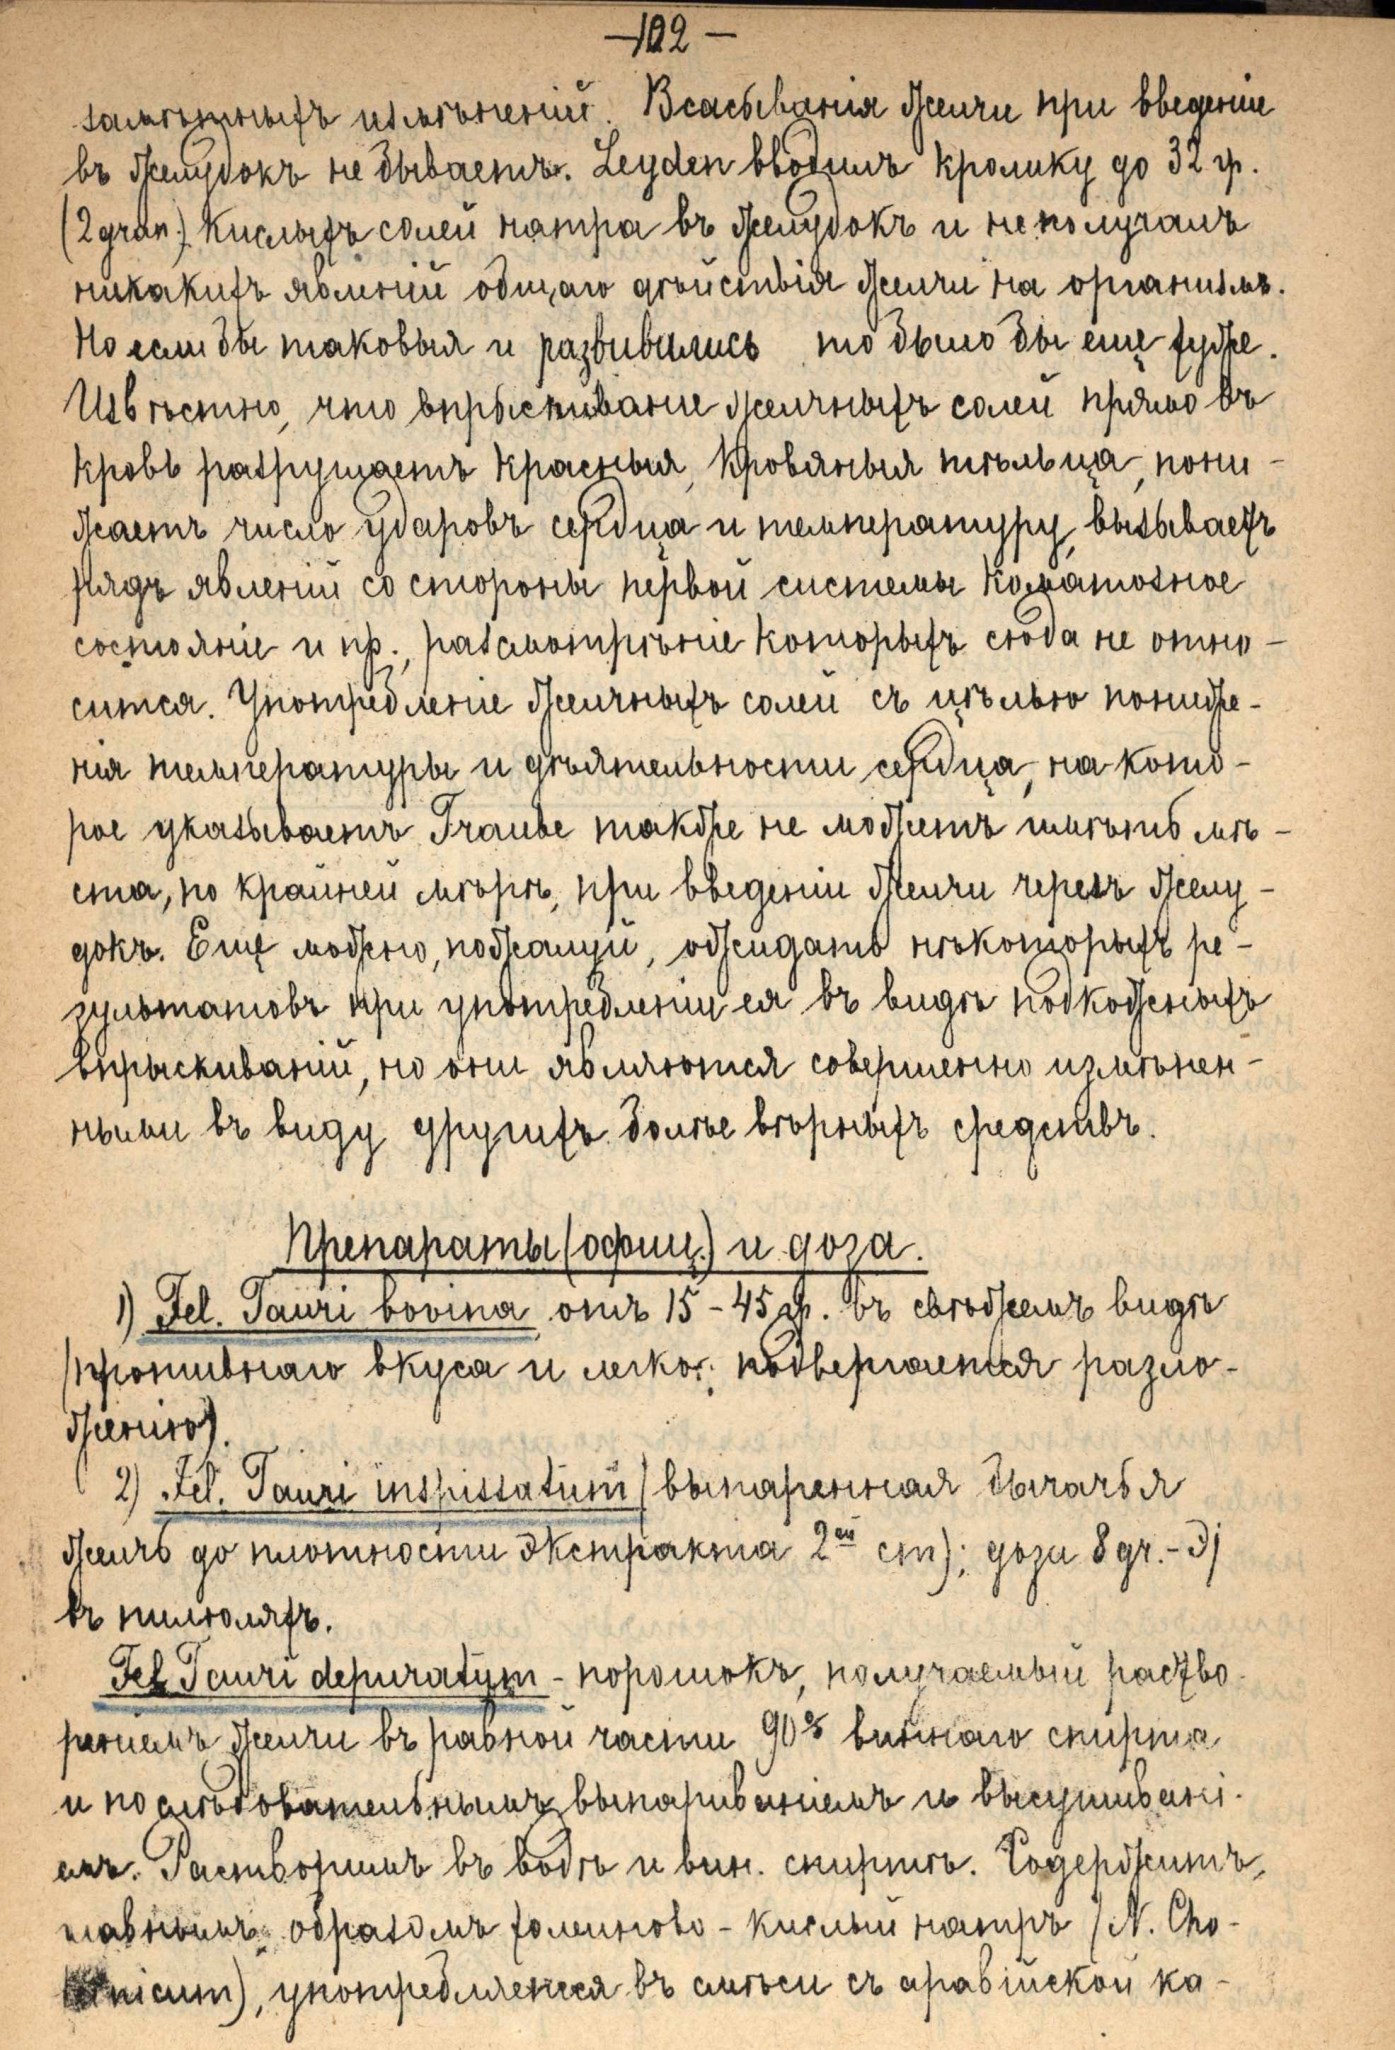 —102—
замѣтныхъ измѣненій. Всасыванія желчи при введеніе
въ желудокъ не бываетъ. Leyden вводилъ кролику до 32 гр.
(2 gran.) кислыхъ солей натра въ желудокъ и не получалъ
никакихъ явленій общаго дѣйствія желчи на организмъ.
Но если бы таковыя и развивались то было бы еще хуже.
Извѣстно, что впрыскиваніе желчныхъ солей прямо въ
кровь разрушаетъ красныя, кровяныя тѣльца, пони-
жаетъ число ударовъ сердца и температуру, вызываетъ
рядъ явленій со стороны нервой системы коматозное
состояніе и пр., разсмотрѣніе которыхъ сюда не отно-
сится. Употребленіе желчныхъ солей съ цѣлью пониже-
нія температуры и дѣятельности сердца, на кото-
рое указываетъ Traube также не можетъ имѣть мѣ-
ста, по крайней мѣрѣ, при введеніи желчи черезъ желу-
докъ. Еще можно, пожалуй, ожидать нѣкоторыхъ ре-
зультатовъ при употребленіи ея въ видѣ подкожныхъ
впрыскиваній, но они являются совершенно измѣнен-
ными въ виду другихъ болѣе вѣрныхъ средствъ.
Препараты (офиц.) и доза.
1) Fel. Tauri bovina отъ 15-45 гр. въ свѣжемъ видѣ
(противнаго вкуса и легко подвергается разло-
женію).
2) Fel. Tauri inspissatum (выпаренная бычачья
желчь до плотности экстракта 2ой ст); дозы 8 gr.-Эj
въ пилюляхъ.
Fel Tauri depuratum - порошокъ, получаемый раство-
реніемъ желчи въ равной части 90% виннаго спирта
и послѣдовательнымъ выпариваніемъ и высушивані-
емъ. Растворимъ въ водѣ и вин. спиртѣ. Содержитъ,
главнымъ образомъ холеиново-кислый натръ (N. Cho-
nicum), употребляется въ смѣси съ аравійской ка-